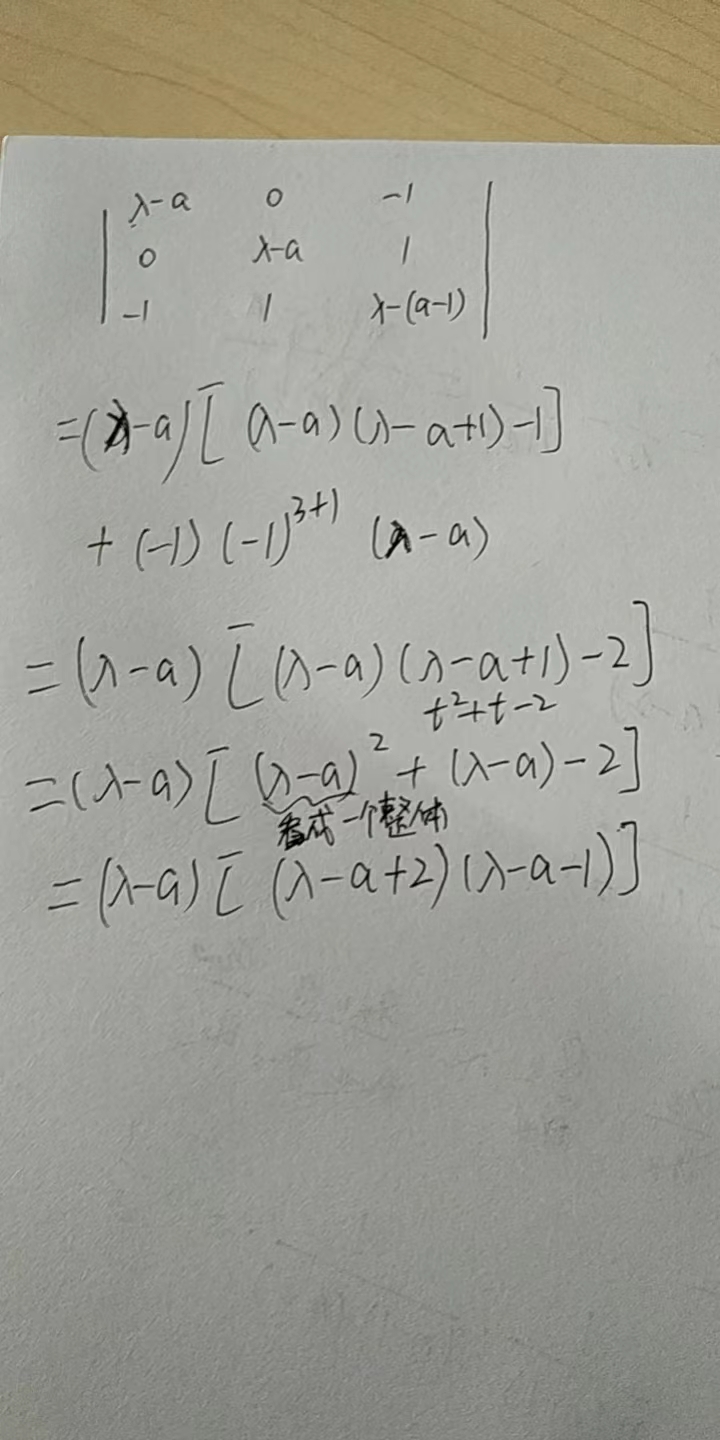 λ-a 0 -1
0 λ-a 1
-1 1 λ-(a-1)
=(λ-a)[(λ-a)(λ-a+1)-1]
+(-1)(-1)³⁺¹(λ-a)
=(λ-a)[(λ-a)(λ-a+1)-2]
t²+t-2
=(λ-a)[(λ-a)²+(λ-a)-2]
看成一个整体
=(λ-a)[(λ-a+2)(λ-a-1)]